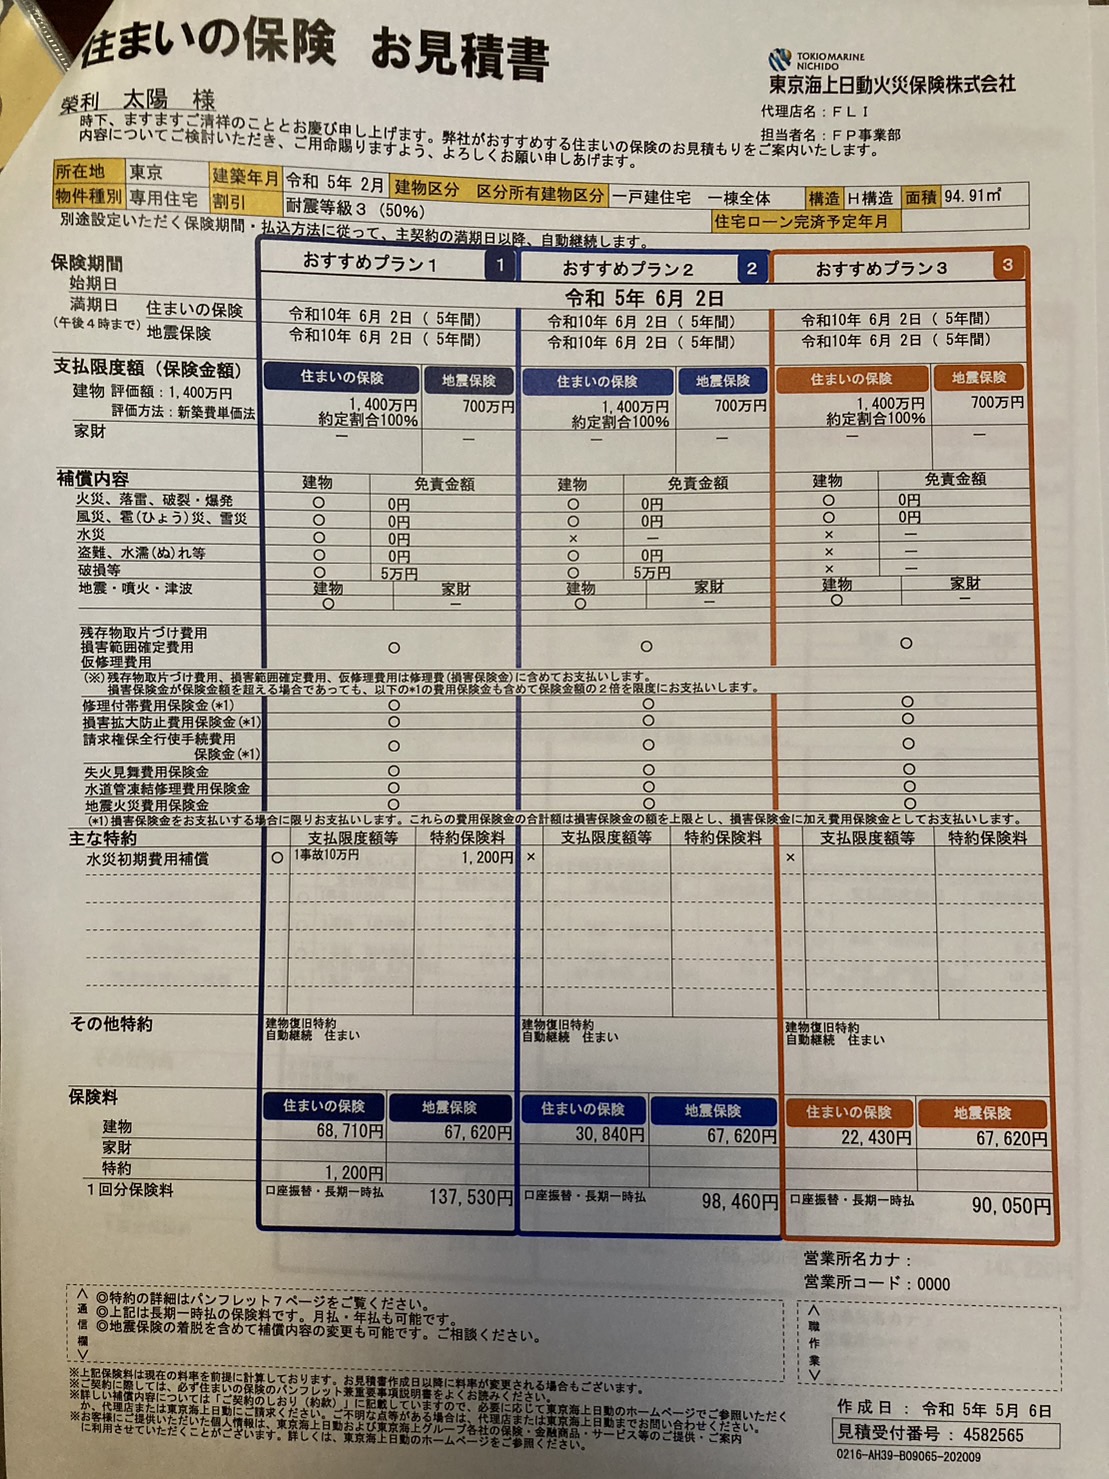 住まいの保険 お見積書
TOKIO MARINE
NICHIDO
東京海上日動火災保険株式会社
榮利 太陽 様
代理店名：ＦＬＩ
担当者名：ＦＰ事業部
時下、ますますご清祥のこととお慶び申し上げます。弊社がおすすめする住まいの保険のお見積もりをご案内いたします。
内容についてご検討いただき、ご用命賜りますよう、よろしくお願い申しあげます。
所在地 東京 建築年月 令和 5年 2月 建物区分 区分所有建物区分 一戸建住宅 一棟全体 構造 Ｈ構造 面積 94.91㎡
物件種別 専用住宅 割引 耐震等級３（50%） 住宅ローン完済予定年月
別途設定いただく保険期間・払込方法に従って、主契約の満期日以降、自動継続します。
保険期間 おすすめプラン１ 1 おすすめプラン２ 2 おすすめプラン３ 3
始期日 令和 5年 6月 2日
満期日 住まいの保険 令和10年 6月 2日（ 5年間） 令和10年 6月 2日（ 5年間） 令和10年 6月 2日（ 5年間）
(午後４時まで) 地震保険 令和10年 6月 2日（ 5年間） 令和10年 6月 2日（ 5年間） 令和10年 6月 2日（ 5年間）
支払限度額（保険金額） 住まいの保険 地震保険 住まいの保険 地震保険 住まいの保険 地震保険
建物 評価額：1,400万円 1,400万円 700万円 1,400万円 700万円 1,400万円 700万円
評価方法：新築費単価法 約定割合100% 約定割合100% 約定割合100%
家財 － － － － － －
補償内容 建物 免責金額 建物 免責金額 建物 免責金額
火災、落雷、破裂・爆発 ○ 0円 ○ 0円 ○ 0円
風災、雹(ひょう)災、雪災 ○ 0円 ○ 0円 ○ 0円
水災 ○ 0円 × － × －
盗難、水濡(ぬ)れ等 ○ 0円 ○ 0円 × －
破損等 ○ 5万円 ○ 5万円 × －
地震・噴火・津波 建物 家財 建物 家財 建物 家財
○ － ○ － ○ －
残存物取片づけ費用
損害範囲確定費用 ○ ○ ○
仮修理費用
(※)残存物取片づけ費用、損害範囲確定費用、仮修理費用は修理費(損害保険金)に含めてお支払いします。
損害保険金が保険金額を超える場合であっても、以下の*1の費用保険金も含めて保険金額の２倍を限度にお支払いします。
修理付帯費用保険金(*1) ○ ○ ○
損害拡大防止費用保険金(*1) ○ ○ ○
請求権保全行使手続費用
保険金(*1) ○ ○ ○
失火見舞費用保険金 ○ ○ ○
水道管凍結修理費用保険金 ○ ○ ○
地震火災費用保険金 ○ ○ ○
(*1)損害保険金をお支払いする場合に限りお支払いします。これらの費用保険金の合計額は損害保険金の額を上限とし、損害保険金に加え費用保険金としてお支払いします。
主な特約 支払限度額等 特約保険料 支払限度額等 特約保険料 支払限度額等 特約保険料
水災初期費用補償 ○ 1事故10万円 1,200円 × ×
その他特約 建物復旧特約 建物復旧特約 建物復旧特約
自動継続 住まい 自動継続 住まい 自動継続 住まい
保険料 住まいの保険 地震保険 住まいの保険 地震保険 住まいの保険 地震保険
建物 68,710円 67,620円 30,840円 67,620円 22,430円 67,620円
家財
特約 1,200円
１回分保険料 口座振替・長期一時払 137,530円 口座振替・長期一時払 98,460円 口座振替・長期一時払 90,050円
営業所名カナ：
営業所コード：0000
＜通信欄＞
◎特約の詳細はパンフレット７ページをご覧ください。
◎上記は長期一時払の保険料です。月払・年払も可能です。
◎地震保険の着脱を含めて補償内容の変更も可能です。ご相談ください。
＜職作業＞
※上記保険料は現在の料率を前提に計算しております。お見積書作成日以降に料率が変更される場合もございます。
※ご契約に際しては、必ず住まいの保険のパンフレット兼重要事項説明書をよくお読みください。
※詳しい補償内容については「ご契約のしおり（約款）」に記載していますので、必要に応じて東京海上日動のホームページでご参照いただく
か、代理店または東京海上日動にご請求ください。ご不明な点等がある場合は、代理店または東京海上日動までお問い合わせください。
※お客様にご提供いただいた個人情報は、東京海上日動および東京海上グループ各社の保険・金融商品・サービス等のご提供・ご案内
に利用させていただくことがございます。詳しくは、東京海上日動のホームページをご参照ください。
作成日：令和 5年 5月 6日
見積受付番号：4582565
0216-AH39-B09065-202009